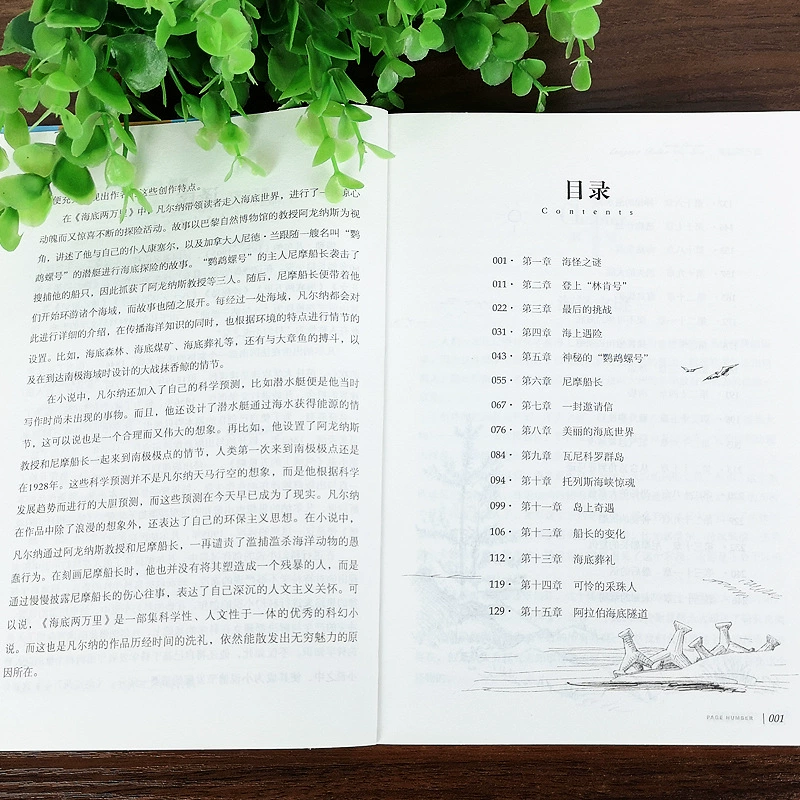 现出作 这些创作特点。
在《海底两万里》中，凡尔纳带领读者走入海底世界，进行了一 惊心
动魄而又惊喜不断的探险活动。故事以巴黎自然博物馆的教授阿龙纳斯为视
角，讲述了他与自己的仆人康塞尔，以及加拿大人尼德·兰跟随一艘名叫“鹦
鹉螺号”的潜艇进行海底探险的故事。“鹦鹉螺号”的主人尼摩船长袭击了
搜捕他的船只，因此抓获了阿龙纳斯教授等三人。随后，尼摩船长便带着他
们开始环游诸个海域，而故事也随之展开。每经过一处海域，凡尔纳都会对
此进行详细的介绍，在传播海洋知识的同时，也根据环境的特点进行情节的
设置。比如，海底森林、海底煤矿、海底葬礼等，还有与大章鱼的搏斗，以
及在到达南极海域时设计的大战抹香鲸的情节。
在小说中，凡尔纳还加入了自己的科学预测，比如潜水艇便是他当时
写作时尚未出现的事物。而且，他还设计了潜水艇通过海水获得能源的情
节，这可以说也是一个合理而又伟大的想象。再比如，他设置了阿龙纳斯
教授和尼摩船长一起来到南极极点的情节，人类第一次来到南极极点还是
在1928年。这些科学预测并不是凡尔纳天马行空的想象，而是他根据科学
发展趋势而进行的大胆预测，而这些预测在今天早已成为了现实。凡尔纳
在作品中除了浪漫的想象外，还表达了自己的环保主义思想。在小说中，
凡尔纳通过阿龙纳斯教授和尼摩船长，一再谴责了滥捕滥杀海洋动物的愚
蠢行为。在刻画尼摩船长时，他也并没有将其塑造成一个残暴的人，而是
通过慢慢披露尼摩船长的伤心往事，表达了自己深沉的人文主义关怀。可
以说，《海底两万里》是一部集科学性、人文性于一体的优秀的科幻小
说。而这也是凡尔纳的作品历经时间的洗礼，依然能散发出无穷魅力的原
因所在。
目录
Contents
001· 第一章 海怪之谜
011· 第二章 登上“林肯号”
022· 第三章 最后的挑战
031· 第四章 海上遇险
043· 第五章 神秘的“鹦鹉螺号”
055· 第六章 尼摩船长
067· 第七章 一封邀请信
076· 第八章 美丽的海底世界
084· 第九章 瓦尼科罗群岛
094· 第十章 托列斯海峡惊魂
099· 第十一章 岛上奇遇
106· 第十二章 船长的变化
112· 第十三章 海底葬礼
119· 第十四章 可怜的采珠人
129· 第十五章 阿拉伯海底隧道
PAGE NUMBER | 001